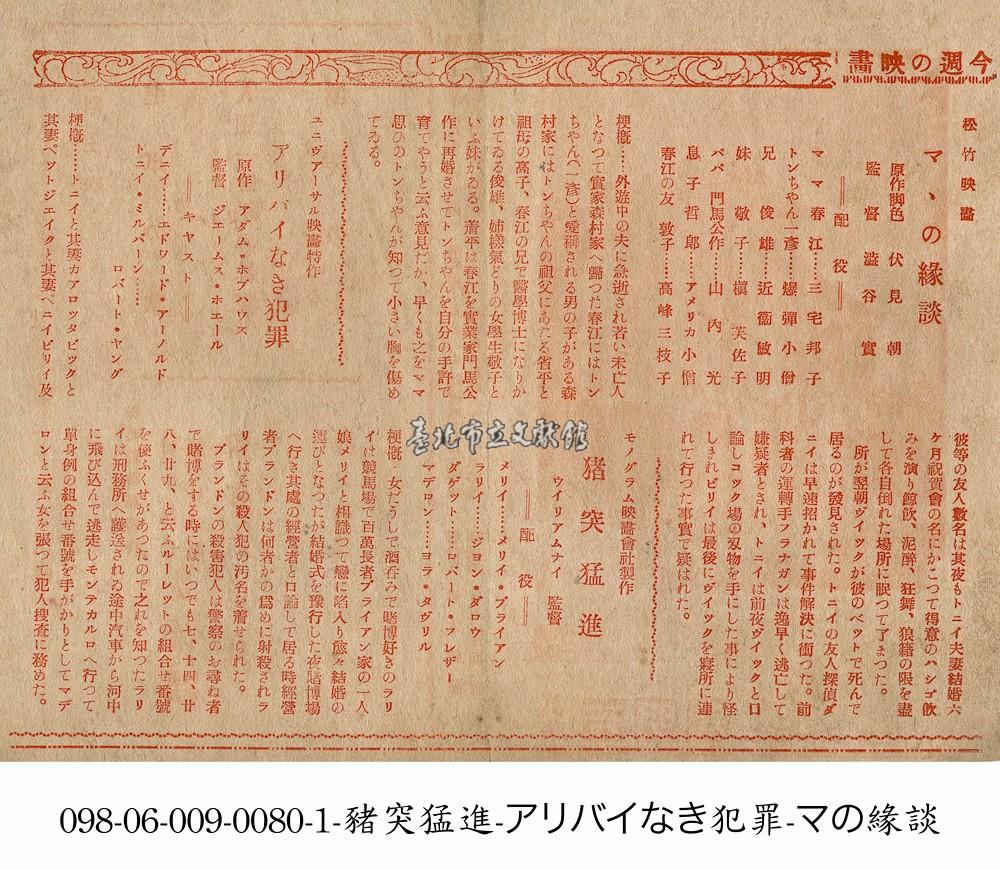 今週の映畫
松竹映畫
マヽの緣談
原作脚色 伏見朝
監督 澁谷實
＝配役＝
ママ春江……三宅邦子
トンちやん一彥……爆彈小僧
兄 俊雄……近衞敏明
妹 敬子……槇芙佐子
パパ 門馬公作……山內光
息子哲郎……アメリカ小僧
春江の友 敦子……高峰三枝子
梗槪……外遊中の夫に急逝され若い未亡人
となつて實家森村家へ歸つた春江にはトン
ちやん(一彥)と愛稱される男の子がある森
村家にはトンちやんの祖父にあたる省平と
祖母の高子、春江の兄で醫學博士になりか
けてゐる俊雄、姉樣氣どりの女學生敬子と
いふ妹がゐる。省平は春江を實業家門馬公
作に再婚させてトンちやんを自分の手許で
育てやうと云ふ意見だか、早くも之をママ
思ひのトンちやんが知つて小さい胸を傷め
てゐる。
ユニヴアーサル映畫特作
アリバイなき犯罪
原作 アダム・ホブハウス
監督 ジエームス・ホエール
＝キヤスト＝
デニイ……エドワード・アーノルド
トニイ・ミルバーン……
ロバート・ヤング
梗槪……トニイと其妻カアロツタビツクと
其妻ベツトジエイクと其妻ペニイビリイ及
彼等の友人數名は其夜もトニイ夫妻結婚六
ケ月祝賀會の名にかこつて得意のハシゴ飮
みを演り鯨飮、泥醉、狂舞、狼籍の限を盡
して各自倒れた場所に眠つて了まつた。
所が翌朝ヴイツクが彼のベツトで死んで
居るのが發見された。トニイの友人探偵ダ
ニイは早速招かれて事件解決に衝つた。前
科者の運轉手フラナガンは逸早く逃亡して
嫌疑者とされ、トニイは前夜ヴイツクと口
論しコツク場の刄物を手にした事により怪
しまれビリイは最後にヴイツクを寢所に連
れて行つた事實で疑はれた。
モノグラム映畫會社製作
猪突猛進
ウイリアムナイ 監督
＝配役＝
メリイ……メリイ・ブライアン
ラリイ……ジヨン・ダロウ
ダゲツト……ロバート・フレザー
マデロン……ヨラ・ダヴリル
梗槪・女だらしで酒呑みで賭博好きのラリ
イは競馬場で百萬長者ブライアン家の一人
娘メリイと相識つて戀に陷入り愈々結婚の
運びとなつたが結婚式を豫行した夜賭博場
へ行き其處の經營者と口論して居る時經營
者ブランドンは何者かの爲めに射殺されラ
リイはその殺人犯の汚名を着せられた。
ブランドンの殺害犯人は警察のお尋ね者
で賭博をする時にはいつでも七、十四、廿
八、廿九、と云ふルーレツトの組合せ番號
を使ふくせがあつたので之れを知つたラリ
イは刑務所へ護送される途中汽車から河中
に飛び込んで逃走しモンテカルロへ行つて
單身例の組合せ番號を手がかりとしてマデ
ロンと云ふ女を張つて犯人搜査に務めた。
臺北市立文獻館
098-06-009-0080-1-豬突猛進-アリバイなき犯罪-マの緣談